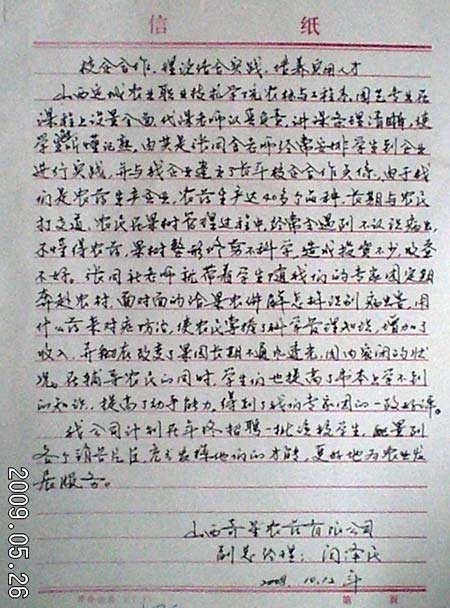 信 纸
校企合作,理论结合实践,培养实用人才
山西运城农业职业技术学院农林与工程系,园艺专业在
课程上设置全面,代课老师认真负责,讲课条理清晰,使
学生听懂记熟,尤其是张同会老师经常安排学生到企业
进行实践,并与我企业建立了长年校企合作关系,由于我
们是农药生产企业,农药生产达40多个品种,长期与农民
打交道,农民在果树管理过程中,经常会遇到不认识病虫,
不懂得农药,果树整形修剪不科学,造成投资不少,收益
不好。张同 老师就带着学生随我们的专家团定期
奔赴农村,面对面的给果农讲解怎样识别病虫害,用
什么药来对症防治,使农民掌握了科学管理知识,增加了
收入,并彻底改变了果园长期不通风透光,园内密闭的状
况。在辅导农民的同时,学生们也提高了书本上学不到
的知识,提高了动手能力,得到了我们专家团的一致好评。
我公司计划在年终招聘一批该校学生,配置到
各个销售片区,充分发挥他们的才能,更好地为农业发
展服务。
山西奇星农药有限公司
副总经理:闫泽民
2008.10.12 年
第 页
2009.05.26